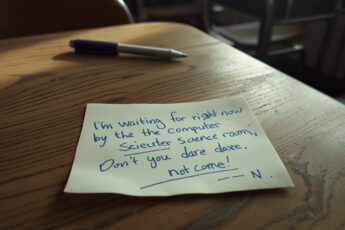 I'm waiting for right now
by the the computer
Scieuter Science room,
Don't you dare dare.
not come!
— — N.